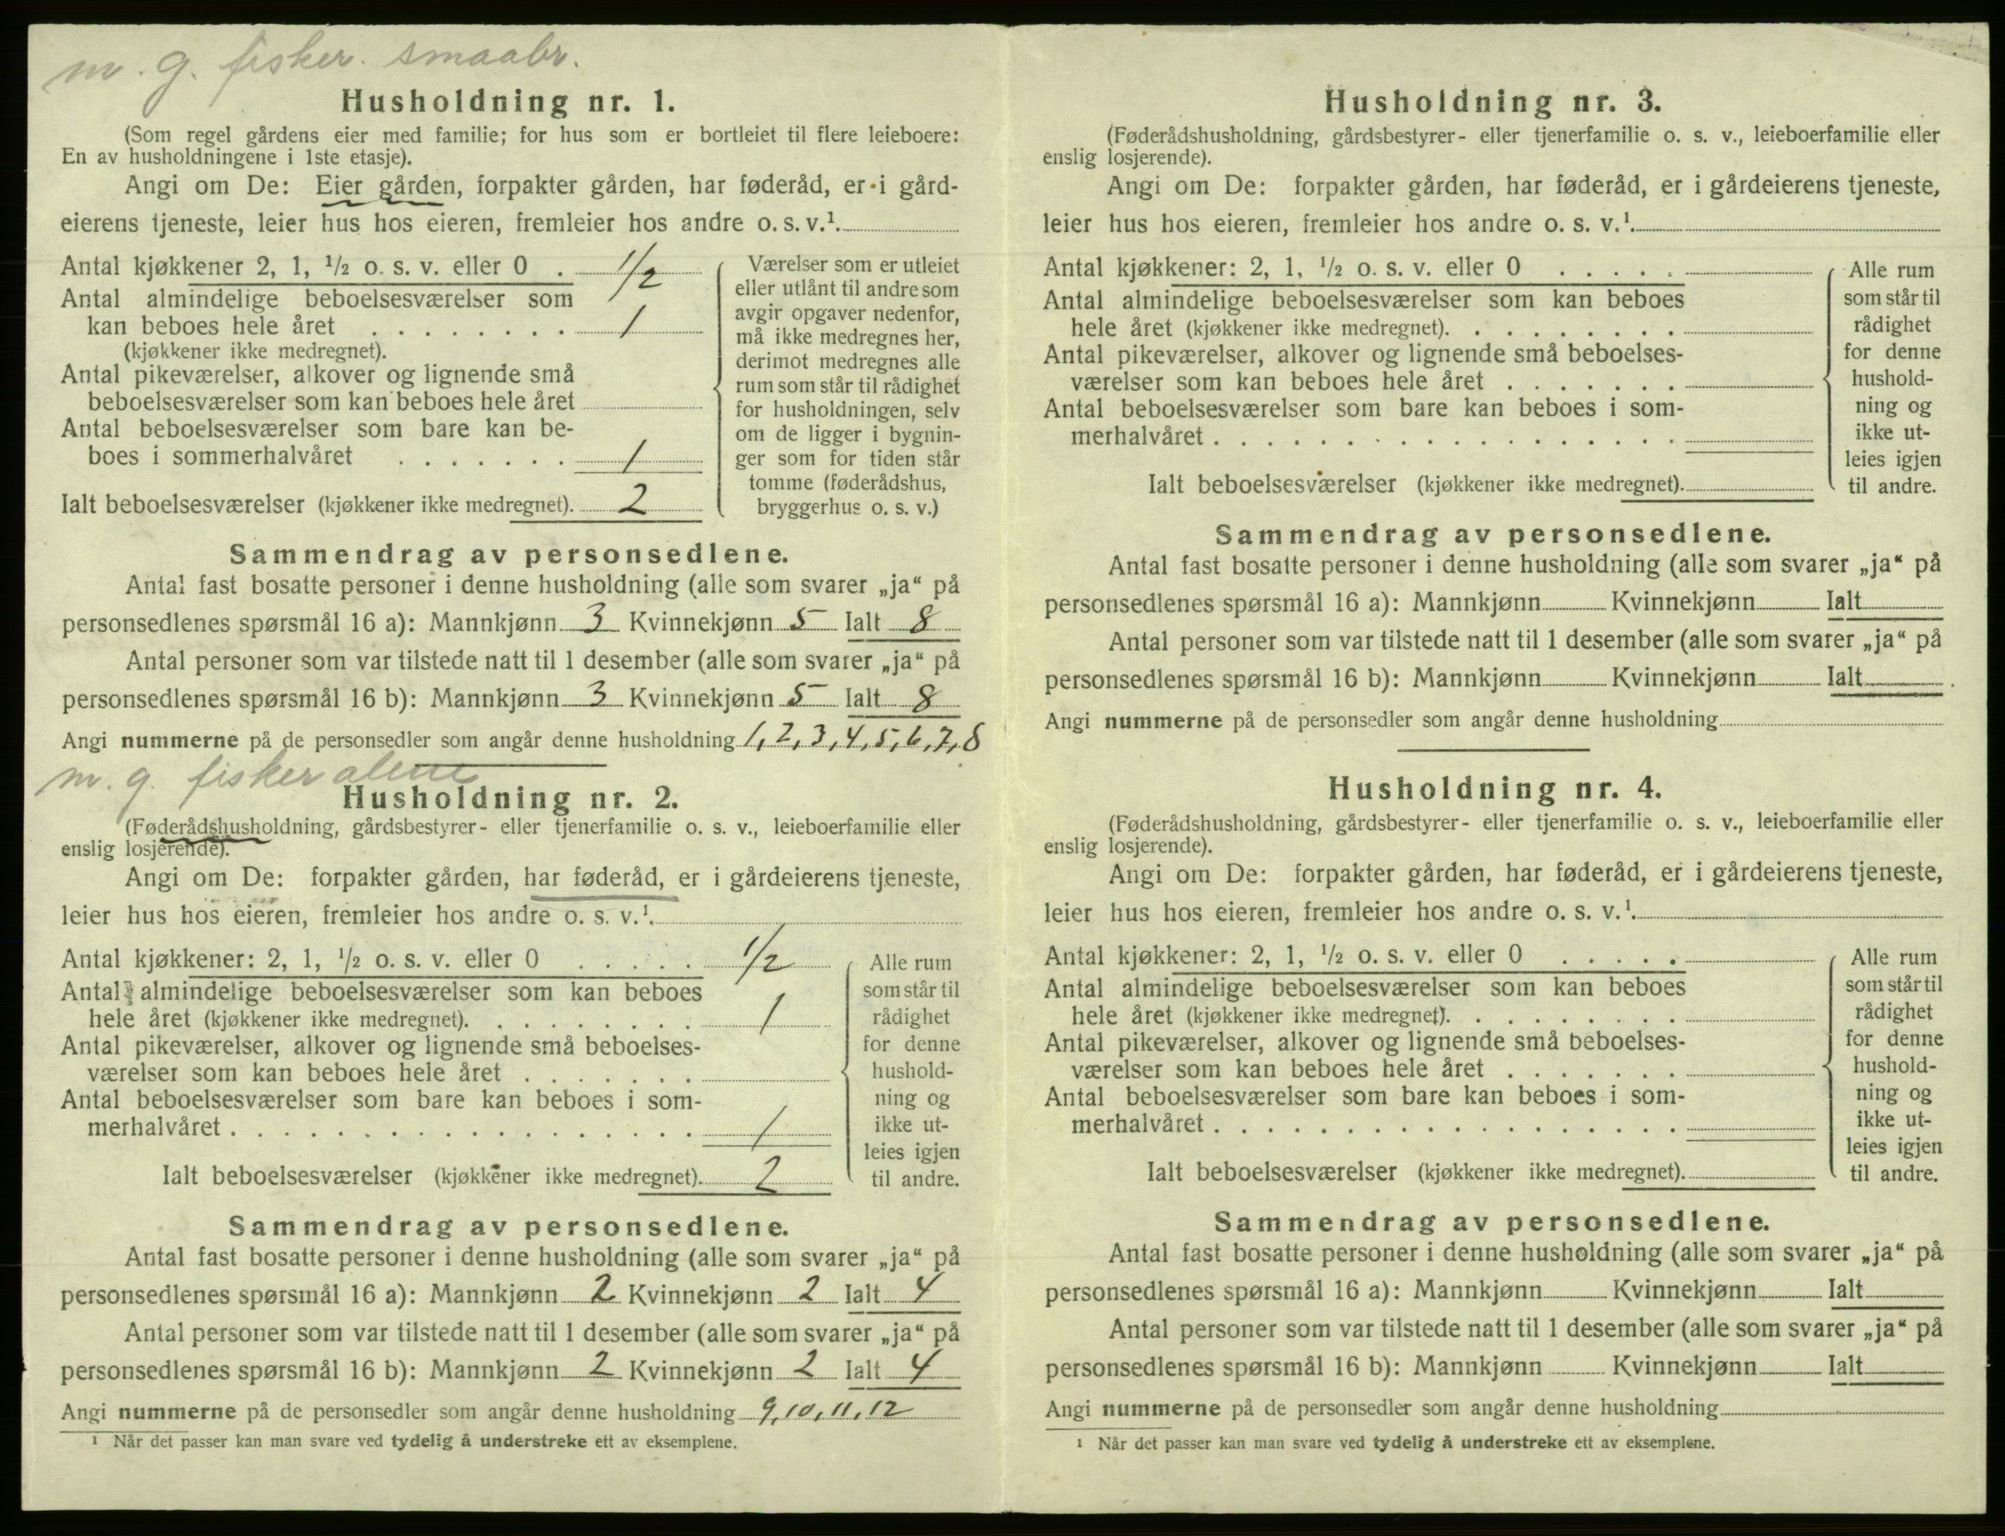 m. g. fisker. smaabr.
Husholdning nr. 1.
(Som regel gårdens eier med familie; for hus som er bortleiet til flere leieboere:
En av husholdningene i 1ste etasje).
Angi om De: Eier gården, forpakter gården, har føderåd, er i gård-
eierens tjeneste, leier hus hos eieren, fremleier hos andre o. s. v.¹.
Antal kjøkkener 2, 1, ½ o. s. v. eller 0 . 1/2
Antal almindelige beboelsesværelser som
kan beboes hele året . . . . . . . . 1
(kjøkkener ikke medregnet).
Antal pikeværelser, alkover og lignende små
beboelsesværelser som kan beboes hele året
Antal beboelsesværelser som bare kan be-
boes i sommerhalvåret . . . . . . . 1
Ialt beboelsesværelser (kjøkkener ikke medregnet). 2
Værelser som er utleiet
eller utlånt til andre som
avgir opgaver nedenfor,
må ikke medregnes her,
derimot medregnes alle
rum som står til rådighet
for husholdningen, selv
om de ligger i bygnin-
ger som for tiden står
tomme (føderådshus,
bryggerhus o. s. v.)
Sammendrag av personsedlene.
Antal fast bosatte personer i denne husholdning (alle som svarer „ja“ på
personsedlenes spørsmål 16 a): Mannkjønn 3 Kvinnekjønn 5 Ialt 8
Antal personer som var tilstede natt til 1 desember (alle som svarer „ja“ på
personsedlenes spørsmål 16 b): Mannkjønn 3 Kvinnekjønn 5 Ialt 8
Angi nummerne på de personsedler som angår denne husholdning 1, 2, 3, 4, 5, 6, 7, 8
m. g. fisker alene
Husholdning nr. 2.
(Føderådshusholdning, gårdsbestyrer- eller tjenerfamilie o. s. v., leieboerfamilie eller
enslig losjerende).
Angi om De: forpakter gården, har føderåd, er i gårdeierens tjeneste,
leier hus hos eieren, fremleier hos andre o. s. v.¹.
Antal kjøkkener: 2, 1, ½ o. s. v. eller 0 . . . . . 1/2
Antal almindelige beboelsesværelser som kan beboes
hele året (kjøkkener ikke medregnet). . . . . . . . . 1
Antal pikeværelser, alkover og lignende små beboelses-
værelser som kan beboes hele året . . . . . . .
Antal beboelsesværelser som bare kan beboes i som-
merhalvåret . . . . . . . . . . . . . . . . . . 1
Ialt beboelsesværelser (kjøkkener ikke medregnet). 2
Alle rum
som står til
rådighet
for denne
hushold-
ning og
ikke ut-
leies igjen
til andre.
Sammendrag av personsedlene.
Antal fast bosatte personer i denne husholdning (alle som svarer „ja“ på
personsedlenes spørsmål 16 a): Mannkjønn 2 Kvinnekjønn 2 Ialt 4
Antal personer som var tilstede natt til 1 desember (alle som svarer „ja“ på
personsedlenes spørsmål 16 b): Mannkjønn 2 Kvinnekjønn 2 Ialt 4
Angi nummerne på de personsedler som angår denne husholdning 9, 10, 11, 12
¹ Når det passer kan man svare ved tydelig å understreke ett av eksemplene.
Husholdning nr. 3.
(Føderådshusholdning, gårdsbestyrer- eller tjenerfamilie o. s. v., leieboerfamilie eller
enslig losjerende).
Angi om De: forpakter gården, har føderåd, er i gårdeierens tjeneste,
leier hus hos eieren, fremleier hos andre o. s. v.¹.
Antal kjøkkener: 2, 1, ½ o. s. v. eller 0 . . . . .
Antal almindelige beboelsesværelser som kan beboes
hele året (kjøkkener ikke medregnet). . . . . . . . .
Antal pikeværelser, alkover og lignende små beboelses-
værelser som kan beboes hele året . . . . . . .
Antal beboelsesværelser som bare kan beboes i som-
merhalvåret . . . . . . . . . . . . . . . . . .
Ialt beboelsesværelser (kjøkkener ikke medregnet).
Alle rum
som står til
rådighet
for denne
hushold-
ning og
ikke ut-
leies igjen
til andre.
Sammendrag av personsedlene.
Antal fast bosatte personer i denne husholdning (alle som svarer „ja“ på
personsedlenes spørsmål 16 a): Mannkjønn Kvinnekjønn Ialt
Antal personer som var tilstede natt til 1 desember (alle som svarer „ja“ på
personsedlenes spørsmål 16 b): Mannkjønn Kvinnekjønn Ialt
Angi nummerne på de personsedler som angår denne husholdning
Husholdning nr. 4.
(Føderådshusholdning, gårdsbestyrer- eller tjenerfamilie o. s. v., leieboerfamilie eller
enslig losjerende).
Angi om De: forpakter gården, har føderåd, er i gårdeierens tjeneste,
leier hus hos eieren, fremleier hos andre o. s. v.¹.
Antal kjøkkener: 2, 1, ½ o. s. v. eller 0 . . . . .
Antal almindelige beboelsesværelser som kan beboes
hele året (kjøkkener ikke medregnet). . . . . . . . .
Antal pikeværelser, alkover og lignende små beboelses-
værelser som kan beboes hele året . . . . . . .
Antal beboelsesværelser som bare kan beboes i som-
merhalvåret . . . . . . . . . . . . . . . . . .
Ialt beboelsesværelser (kjøkkener ikke medregnet).
Alle rum
som står til
rådighet
for denne
hushold-
ning og
ikke ut-
leies igjen
til andre.
Sammendrag av personsedlene.
Antal fast bosatte personer i denne husholdning (alle som svarer „ja“ på
personsedlenes spørsmål 16 a): Mannkjønn Kvinnekjønn Ialt
Antal personer som var tilstede natt til 1 desember (alle som svarer „ja“ på
personsedlenes spørsmål 16 b): Mannkjønn Kvinnekjønn Ialt
Angi nummerne på de personsedler som angår denne husholdning
¹ Når det passer kan man svare ved tydelig å understreke ett av eksemplene.